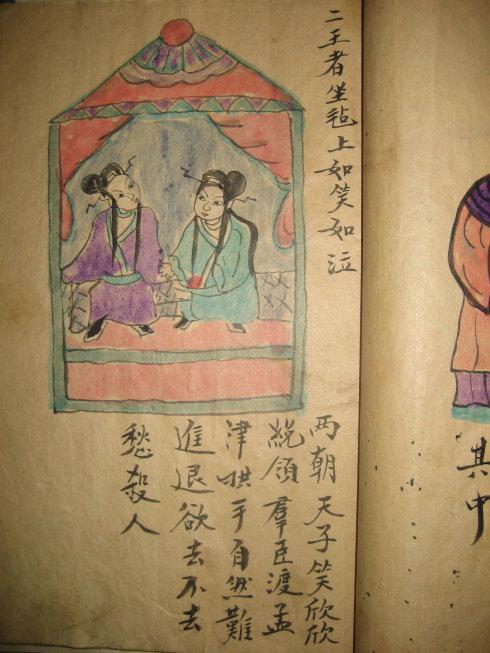 二王者坐毡上如笑如泣
两朝天子笑欣欣
統領羣臣渡孟
津拱手自然難
進退欲去不去
愁殺人
其中